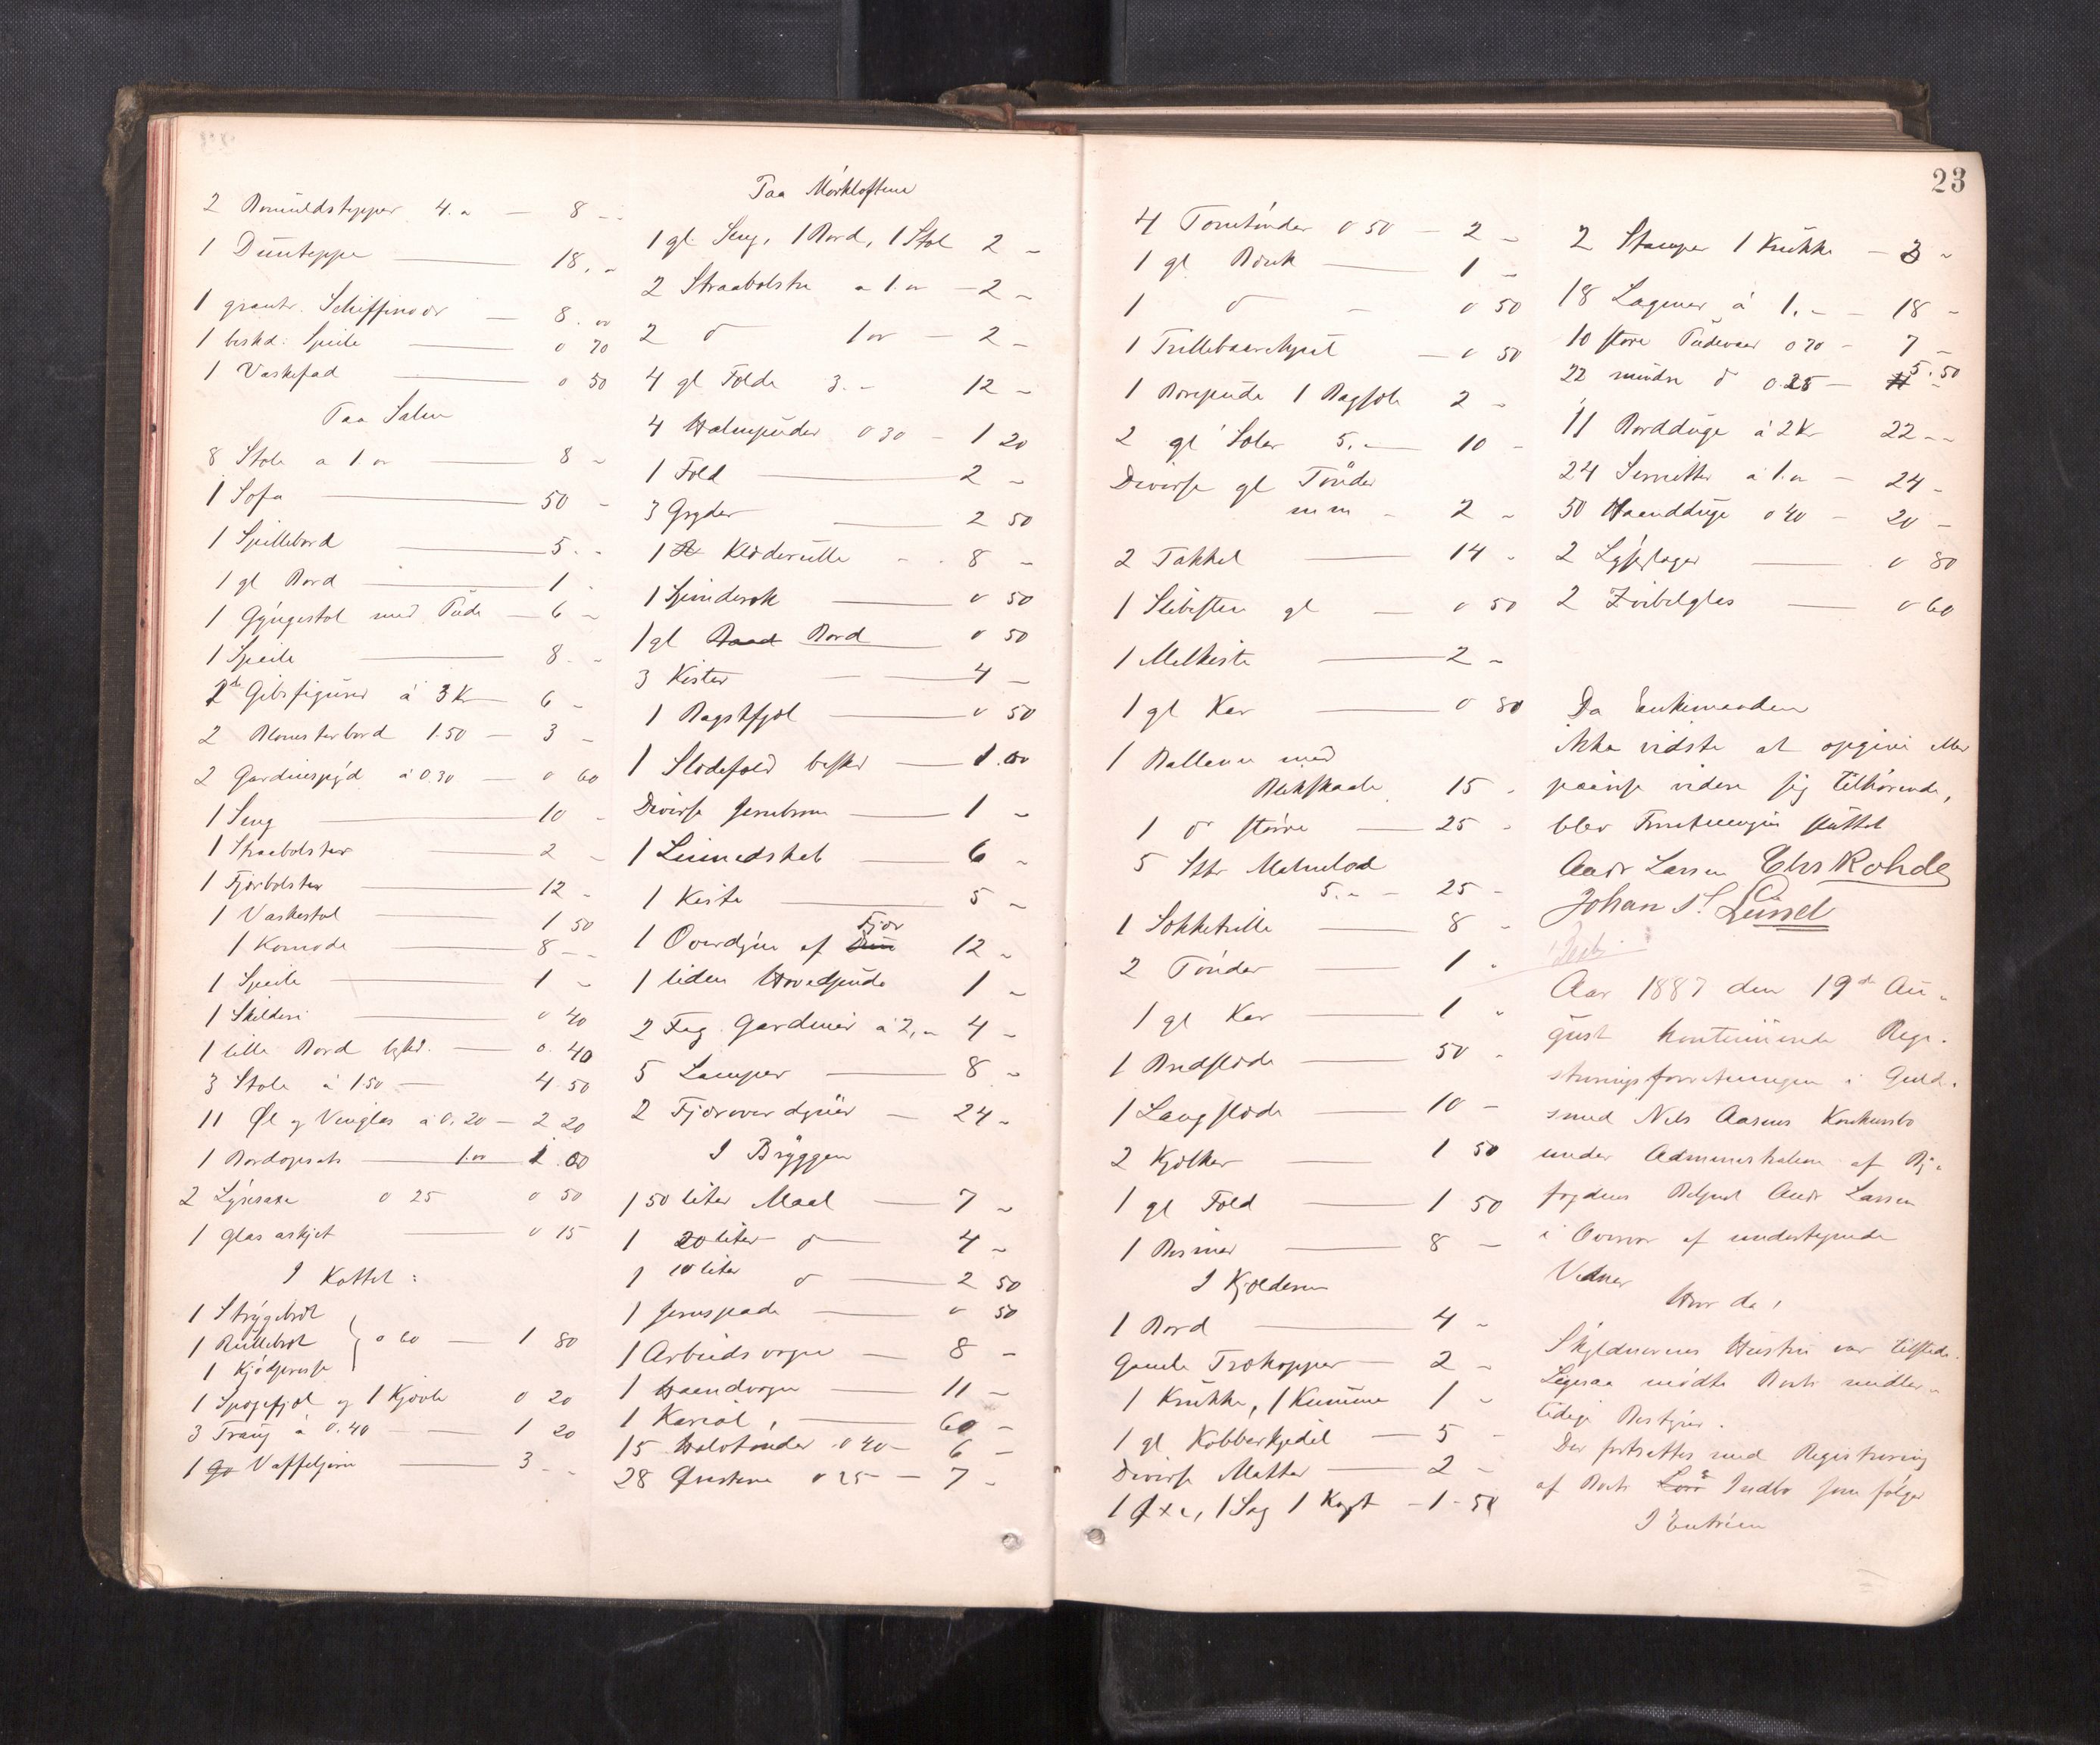 2 Bomuldstepper 4. " — 8 "
1 Dünteppe — 18. "
1 grantr. Schiffinoör — 8. "
1 beskd: Speile — 0 70
1 Vaskefad — 0 50
Paa Salen
8 Stole a 1. " — 8 "
1 Sofa — 50 "
1 Spillebord — 5. "
1 gl Bord — 1 "
1 Gyngestol med Püde — 6 "
1 Speile — 8. "
2 Gibsfigürer á 3 Kr — 6 "
2 Blomsterbord 1.50 — 3 "
2 Gardinspyd á 0.30 — 0 60
1 Seng — 10 "
1 Straabolster — 2 "
1 Fjærbolster — 12 "
1 Vaskestol — 1 50
1 Komode — 8 "
1 Speile — 1 "
1 Skilderi — 0 40
1 lille Bord — 0. 40
3 Stole á 1.50 — 4 50
11 Øl og Vinglas á 0.20 — 2 20
1 Bordopsats — 1. " 1. 00
2 Lysesaxe 0 25 0 50
1 Glas askjet — 0 15
I Kottet:
1 Strygebræt
1 Rüllebræt } a 60 — 1 80
1 Kjødpresse
1 Spegefjøl og 1 Kjævle 0 20
3 Traug á 0.40 — 1 20
1 Vaffeljern — 3 "
Paa Mörkloftene
1 gl Seng, 1 Bord, 1 Stol 2 "
2 Straabolstre a 1. " — 2 "
2 d 1 " — 2 "
4 gl Folde 3. " 12 "
4 Halmpüder 0 30 — 1 20
1 Fold — 2 "
3 Gryder — 2 50
1 Klæderulle — 8 "
1 Spinderok — 0 50
1 gl Bord — 0 50
3 Kister — 4 "
1 Bagstfjøl — 0 50
1 Slædefold beskd — 1.00
Diverse Jernkram — 1 "
1 — 6 "
1 Kiste — 5 "
1 Overdyne af Fjær 12 "
1 liden Hovedpude 1 "
2 Fag Gardiner á 2, " 4 "
5 Lamper — 8 "
2 Fjæroverdyner — 24 "
I Bryggen
1 50 liter Maal — 7 "
1 20 liter d — 4 "
1 10 liter d — 2 50
1 Jernspade — 0 50
1 Arbeidsvogn — 8 "
1 Haandvogn — 11 "
1 Kariol, — 60 "
15 Halvtönder 0 40 — 6 "
28 0 25 — 7 "
23
4 Tomtönder 0 50 — 2 "
1 gl Bænk — 1 "
1 d — 0 50
1 Trillebaarehjul — 0 50
1 2 "
2 gl Seler 5. " 10 "
Diverse gl Tönder
m m — 2 "
2 Takkel — 14 "
1 Slibesten gl — 0 50
1 Melkiste — 2 "
1 gl Kar — 0 80
1 Ballance med
Blikskaale 15 "
1 d större — 25 "
5 Stk Metallod
5. " — 25 "
1 Sækketrille — 8 "
2 Tönder — 1 "
1 gl Kar — 1 "
1 Bredslæde — 50 "
1 Langslæde — 10 "
2 Kjælker — 1 50
1 gl Fold — 1 50
1 Bismer — 8 "
I Kjelderen
1 Bord — 4 "
Gamle Trækopper — 2 "
1 Krükke, 1 Kumme 1 "
1 gl Kobberkjedel — 5 "
Diverse Matter — 2 "
1 Øxe, 1 Sag 1 — 1 - 50
2 Stamper 1 Krükke — 3 "
18 Lagener á 1. " — 18 "
10 store Püdevaar 0 70 — 7 "
22 mindre d 0.25 — 5.50
11 Bordduge á 2 Kr 22 "
24 Servietter á 1. " — 24 "
50 Haandduge 0 40 — 20 "
2 Lysestager — 0 80
2 Zvibelglas — 0 60
Da Enkemanden
ikke vidste at opgive eller
paavise videre sig tilhörende,
blev Forretningen slüttet
Andr Larsen Chr Rohde
Johan S. Lund
Aar 1887 den 19de Au-
gust kontinuerede Regi-
streringsforretningen i Guld-
smed Nils Aasens Konkursbo
under Administration af By-
fogdens Betjent Andr Larsen
i Overvær af undertegnede
Vidner
Hvor da,
Skyldnerens Hüstru var tilstede.
Ligesaa mødte Boets midler-
tidige Bestyrer.
Der fortsattes med Registrering
af Boets Indbo som følger
I Entréen